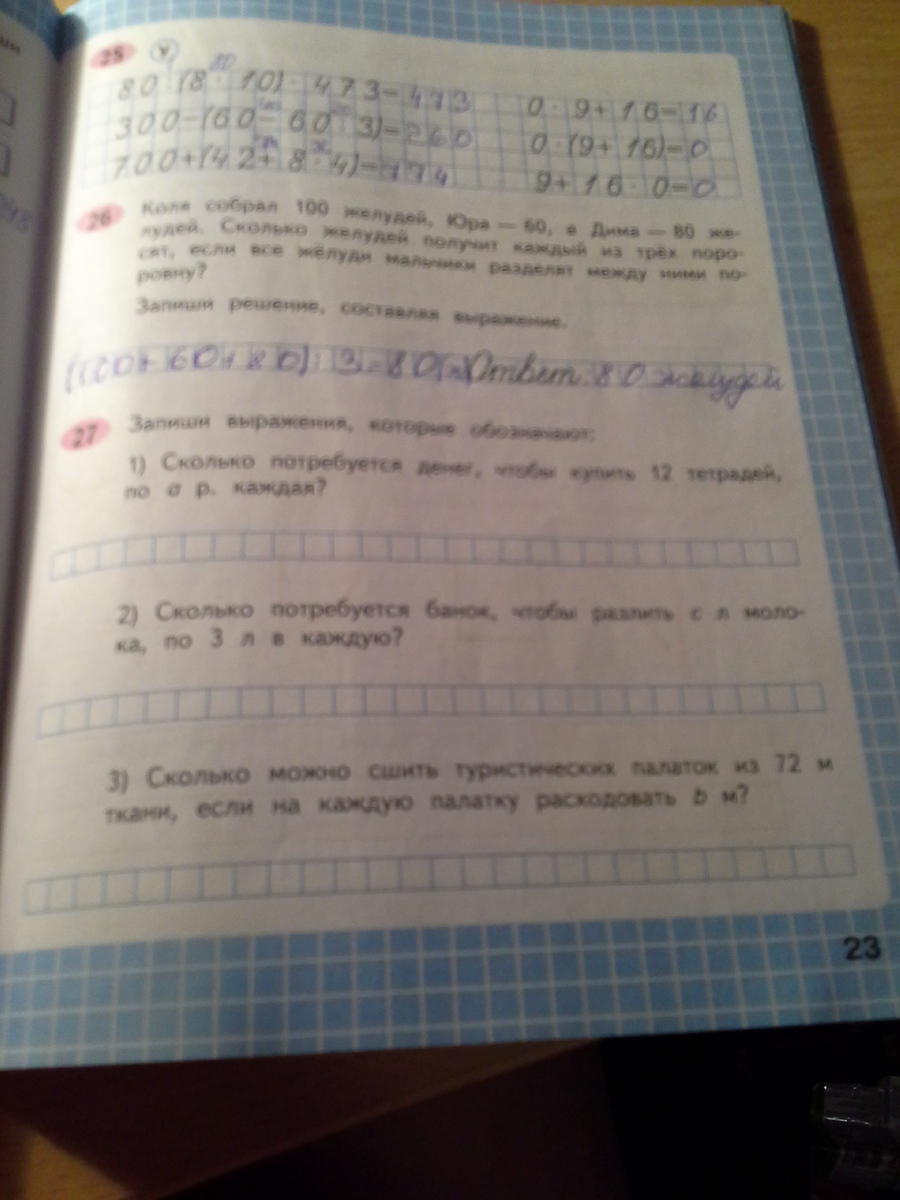 25 У
80
80 : (8 · 10) · 473 = 473
0 · 9 + 16 = 16
300 − (60 − 60 : 3) = 260
0 · (9 + 16) = 0
700 + (42 + 8 · 4) = 774
9 + 16 · 0 = 0
26 Коля собрал 100 желудей, Юра — 60, а Дима — 80 же-
лудей. Сколько желудей получит каждый из трёх поро-
сят, если все жёлуди мальчики разделят между ними по-
ровну?
Запиши решение, составляя выражение.
(100 + 60 + 80) : 3 = 80 (ж) Ответ: 80 желудей
27 Запиши выражения, которые обозначают:
1) Сколько потребуется денег, чтобы купить 12 тетрадей,
по a р. каждая?
2) Сколько потребуется банок, чтобы разлить c л моло-
ка, по 3 л в каждую?
3) Сколько можно сшить туристических палаток из 72 м
ткани, если на каждую палатку расходовать b м?
23